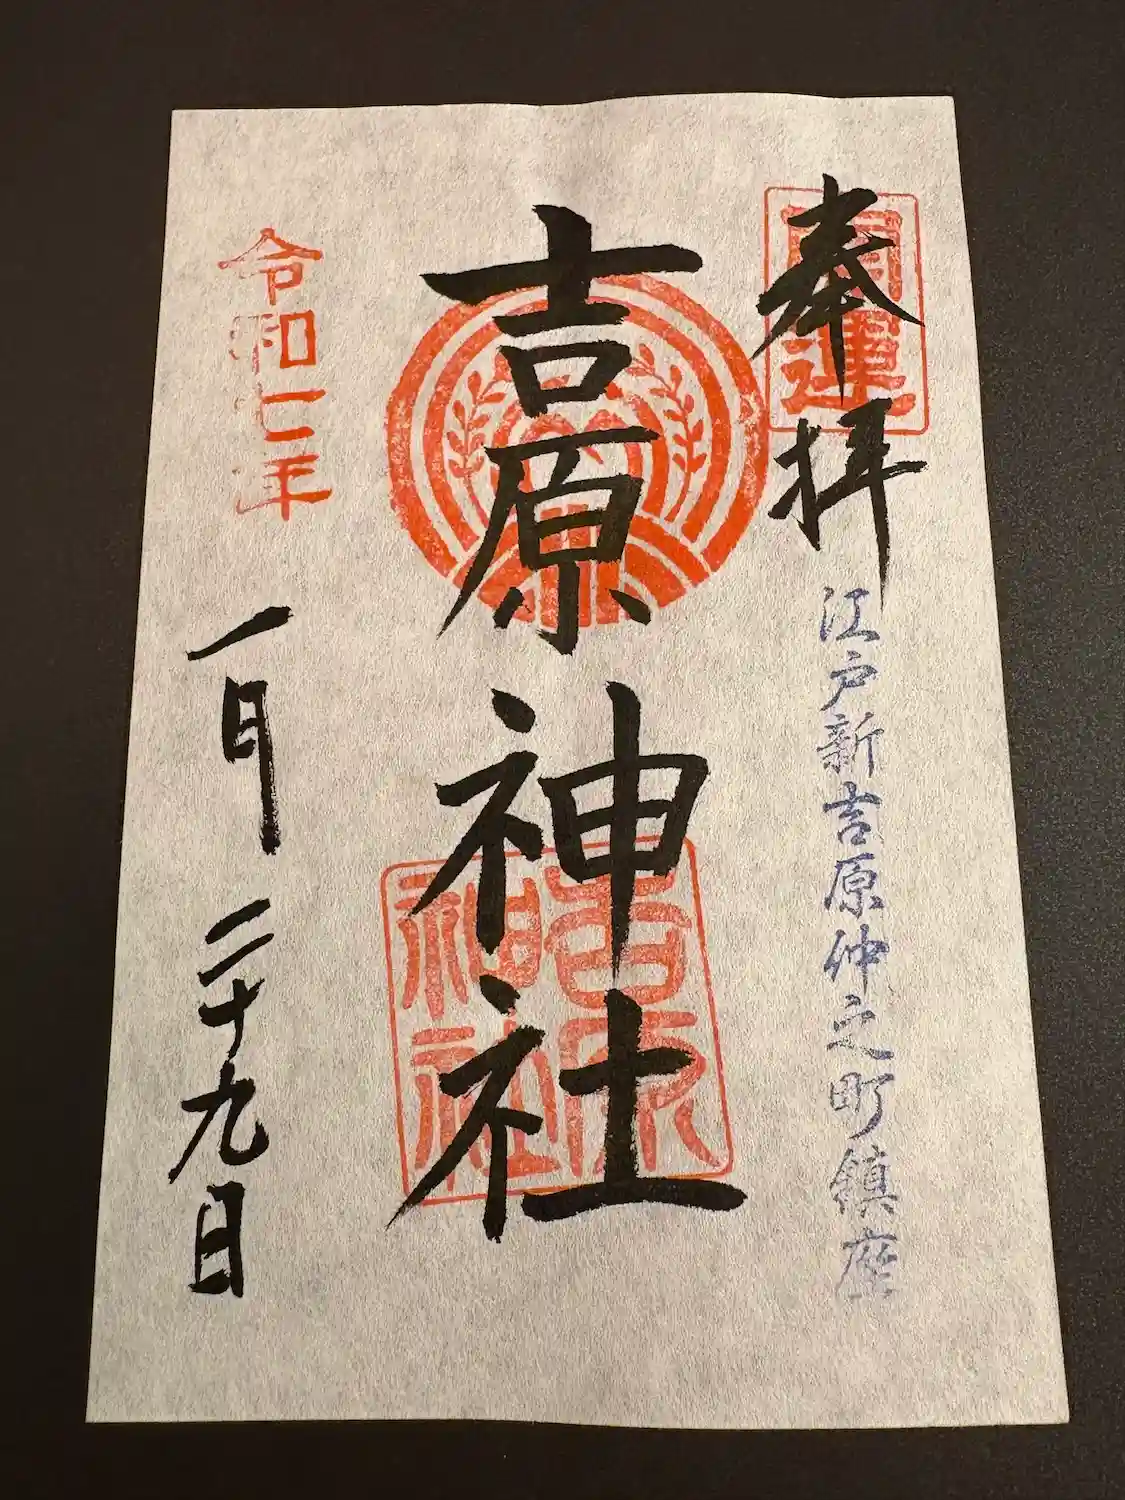 奉拝
開運
江戸新吉原仲之町鎮座
吉原神社
吉原
神社
令和七年
一月二十九日